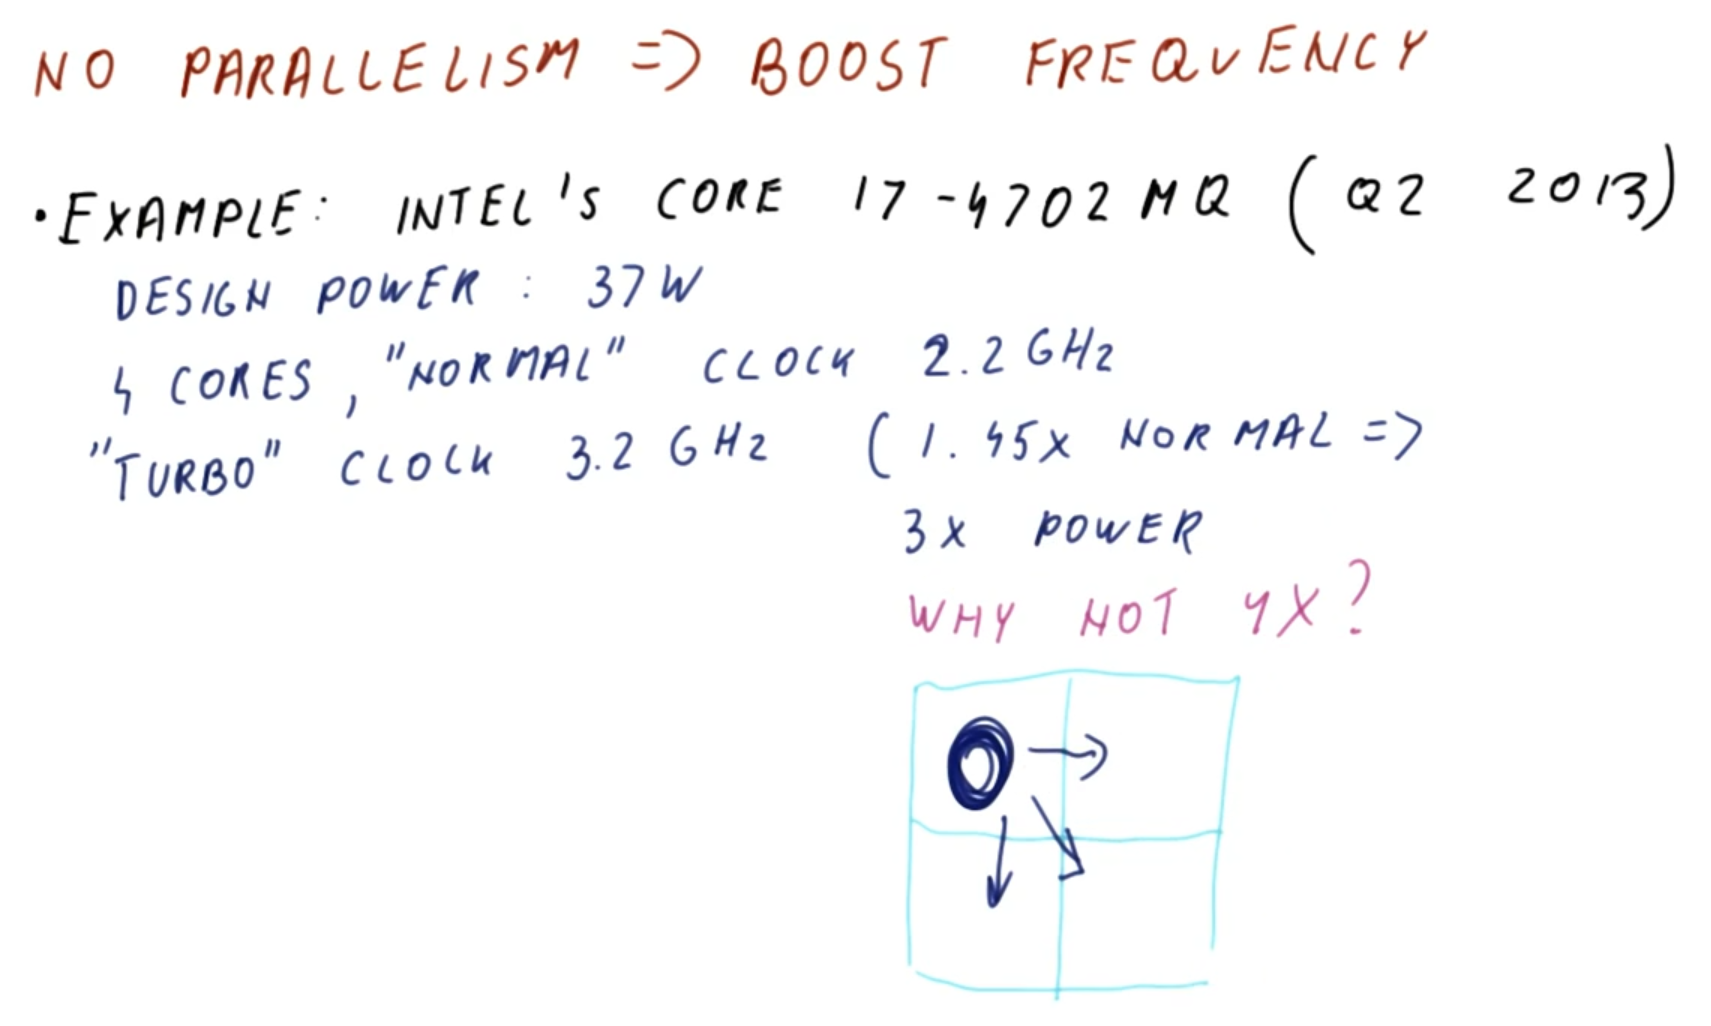 NO PARALLELISM => BOOST FREQUENCY
• EXAMPLE: INTEL'S CORE I7-4702MQ (Q2 2013)
DESIGN POWER: 37W
4 CORES, "NORMAL" CLOCK 2.2 GHz
"TURBO" CLOCK 3.2 GHz (1.45x NORMAL =>
3x POWER
WHY NOT 4X?